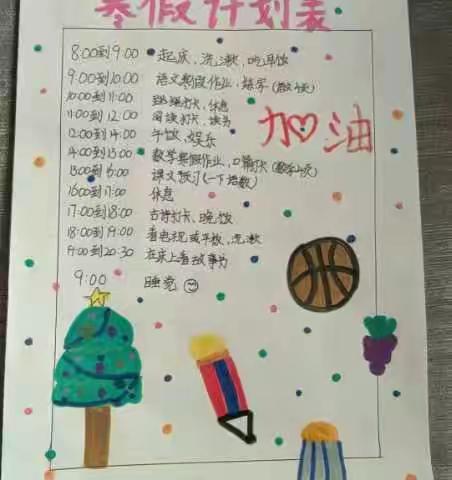 寒假计划表
8:00到9:00 起床、洗漱、吃早饭
9:00到10:00 语文寒假作业、练字
10:00到11:00 跳绳打卡、休息
11:00到12:00 阅读打卡、
12:00到14:00 午饭、娱乐
14:00到15:00 数学寒假作业、口算打卡
15:00到16:00 课文预习(一下语数)
16:00到17:00 休息
17:00到18:00 古诗打卡、晚饭
18:00到19:00 看电视或平板、洗漱
19:00到20:30 在床上看故事书
9:00 睡觉
加油